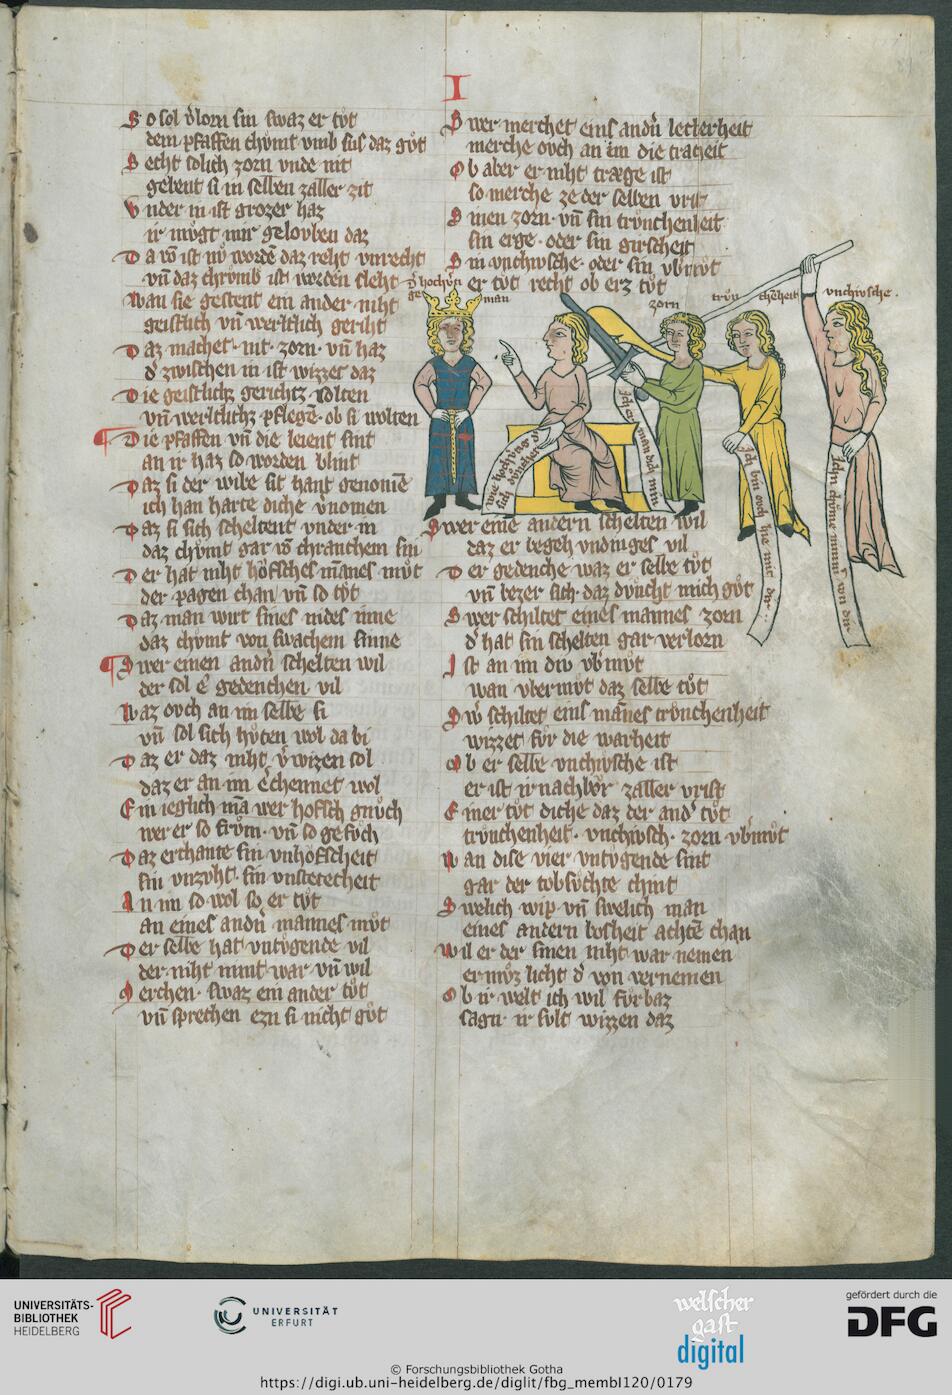 I
So sol v̾lorn sin swaz er tůt
dem pfaffen chůmt vmb sus daz gůt
Secht solich zorn vnde nit
gebent si in selben zaller zit
Vnder in ist grozer haz
ir mvgt mir gelovben daz
Da vō ist nv wordē daz reht vnrecht
vn̄ daz chrvmb ist worden sleht
Wan sie gestent ein ander niht
geistlich vn̄ werltlich geriht
Daz machet nit · zorn · vn̄ haz
d̾ zwischen in ist wizzet daz
Die geistlichz gerichtz solten
vn̄ werltlichz pflegē · ob si wolten
Die pfaffen vn̄ die leient sint
an ir haz so worden blint
Daz si der wibe sit hant genomē
ich han harte diche v̾nomen
Daz si sich scheltent vnder in
daz chůmt gar vō chranchem sin
Der hat niht hoͤfsches mānes můt
der pagen chan vn̄ so tůt
Daz man wirt sines nides inne
daz chvmt von swachem sinne
Swer einen and̾n schelten wil
der sol e gedenchen vil
Waz ovch an im selbe si
vn̄ sol sich hůten wol da bi
Daz er daz niht v̾wizen sol
daz er an im echennet wol
Ein ieglich mā wer hofsch gnůch
wer er so frům · vn̄ so gefůch
Daz erchante sin vnhofscheit
sin vnzvht · sin vnstetecheit
An im so wol so er tůt
an eines and̾n mannes můt
Der selbe hat vntvgende vil
der niht nimt war vn̄ wil
Merchen · swaz ein ander tůt
vn̄ sprechen ezn si nicht gůt
Swer merchet eins and̾n leckerheit
merche ovch an im die tracheit
Ob aber er niht træge ist
so merche ze der selben vrist
Sinen zorn · vn̄ sin trvnchenheit
sin erge · oder sin girscheit
Sin vnchivsche · oder sin vb̾můt
er tůt recht ob erz tůt
man
zorn
trvn chēheit
vnchivsche .
wie hochvns d̾
sich dvnchet
man dich nim
Ich bin ovch hie mit dir
Swer eine andern schelten wil
daz er begeh vndinges vil
Der gedenche waz er selbe tůt
vn̄ bezer sich · daz dvncht mich gůt
Swer schiltet eines mannes zorn
d̾ hat sin schelten gar verlorn
Ist an im div vb̾můt
wan vbermvt daz selbe tůt
Sw̾ schiltet eins mānes trvnchenheit
wizzet fvr die warheit
Ob er selbe vnchivsche ist
er ist ir nachbvr zaller vrist
Einer tůt diche daz der and̾ tůt
trvnchenheit · vnchivsch · zorn vb̾můt
Wan dise vier vntvgende sint
gar der tobsvchte chint
Swelich wip vn̄ swelich man
eines andern bosheit achtē chan
Wil er der sinen niht war nemen
er můz licht d̾ von vernemen
Ob ir welt ich wil fvrbaz
sagn · ir svlt wizzen daz
UNIVERSITÄTS-
BIBLIOTHEK
HEIDELBERG
UNIVERSITÄT
ERFURT
welscher
gast
digital
gefördert durch die
DFG
© Forschungsbibliothek Gotha
https://digi.ub.uni-heidelberg.de/diglit/fbg_membI120/0179